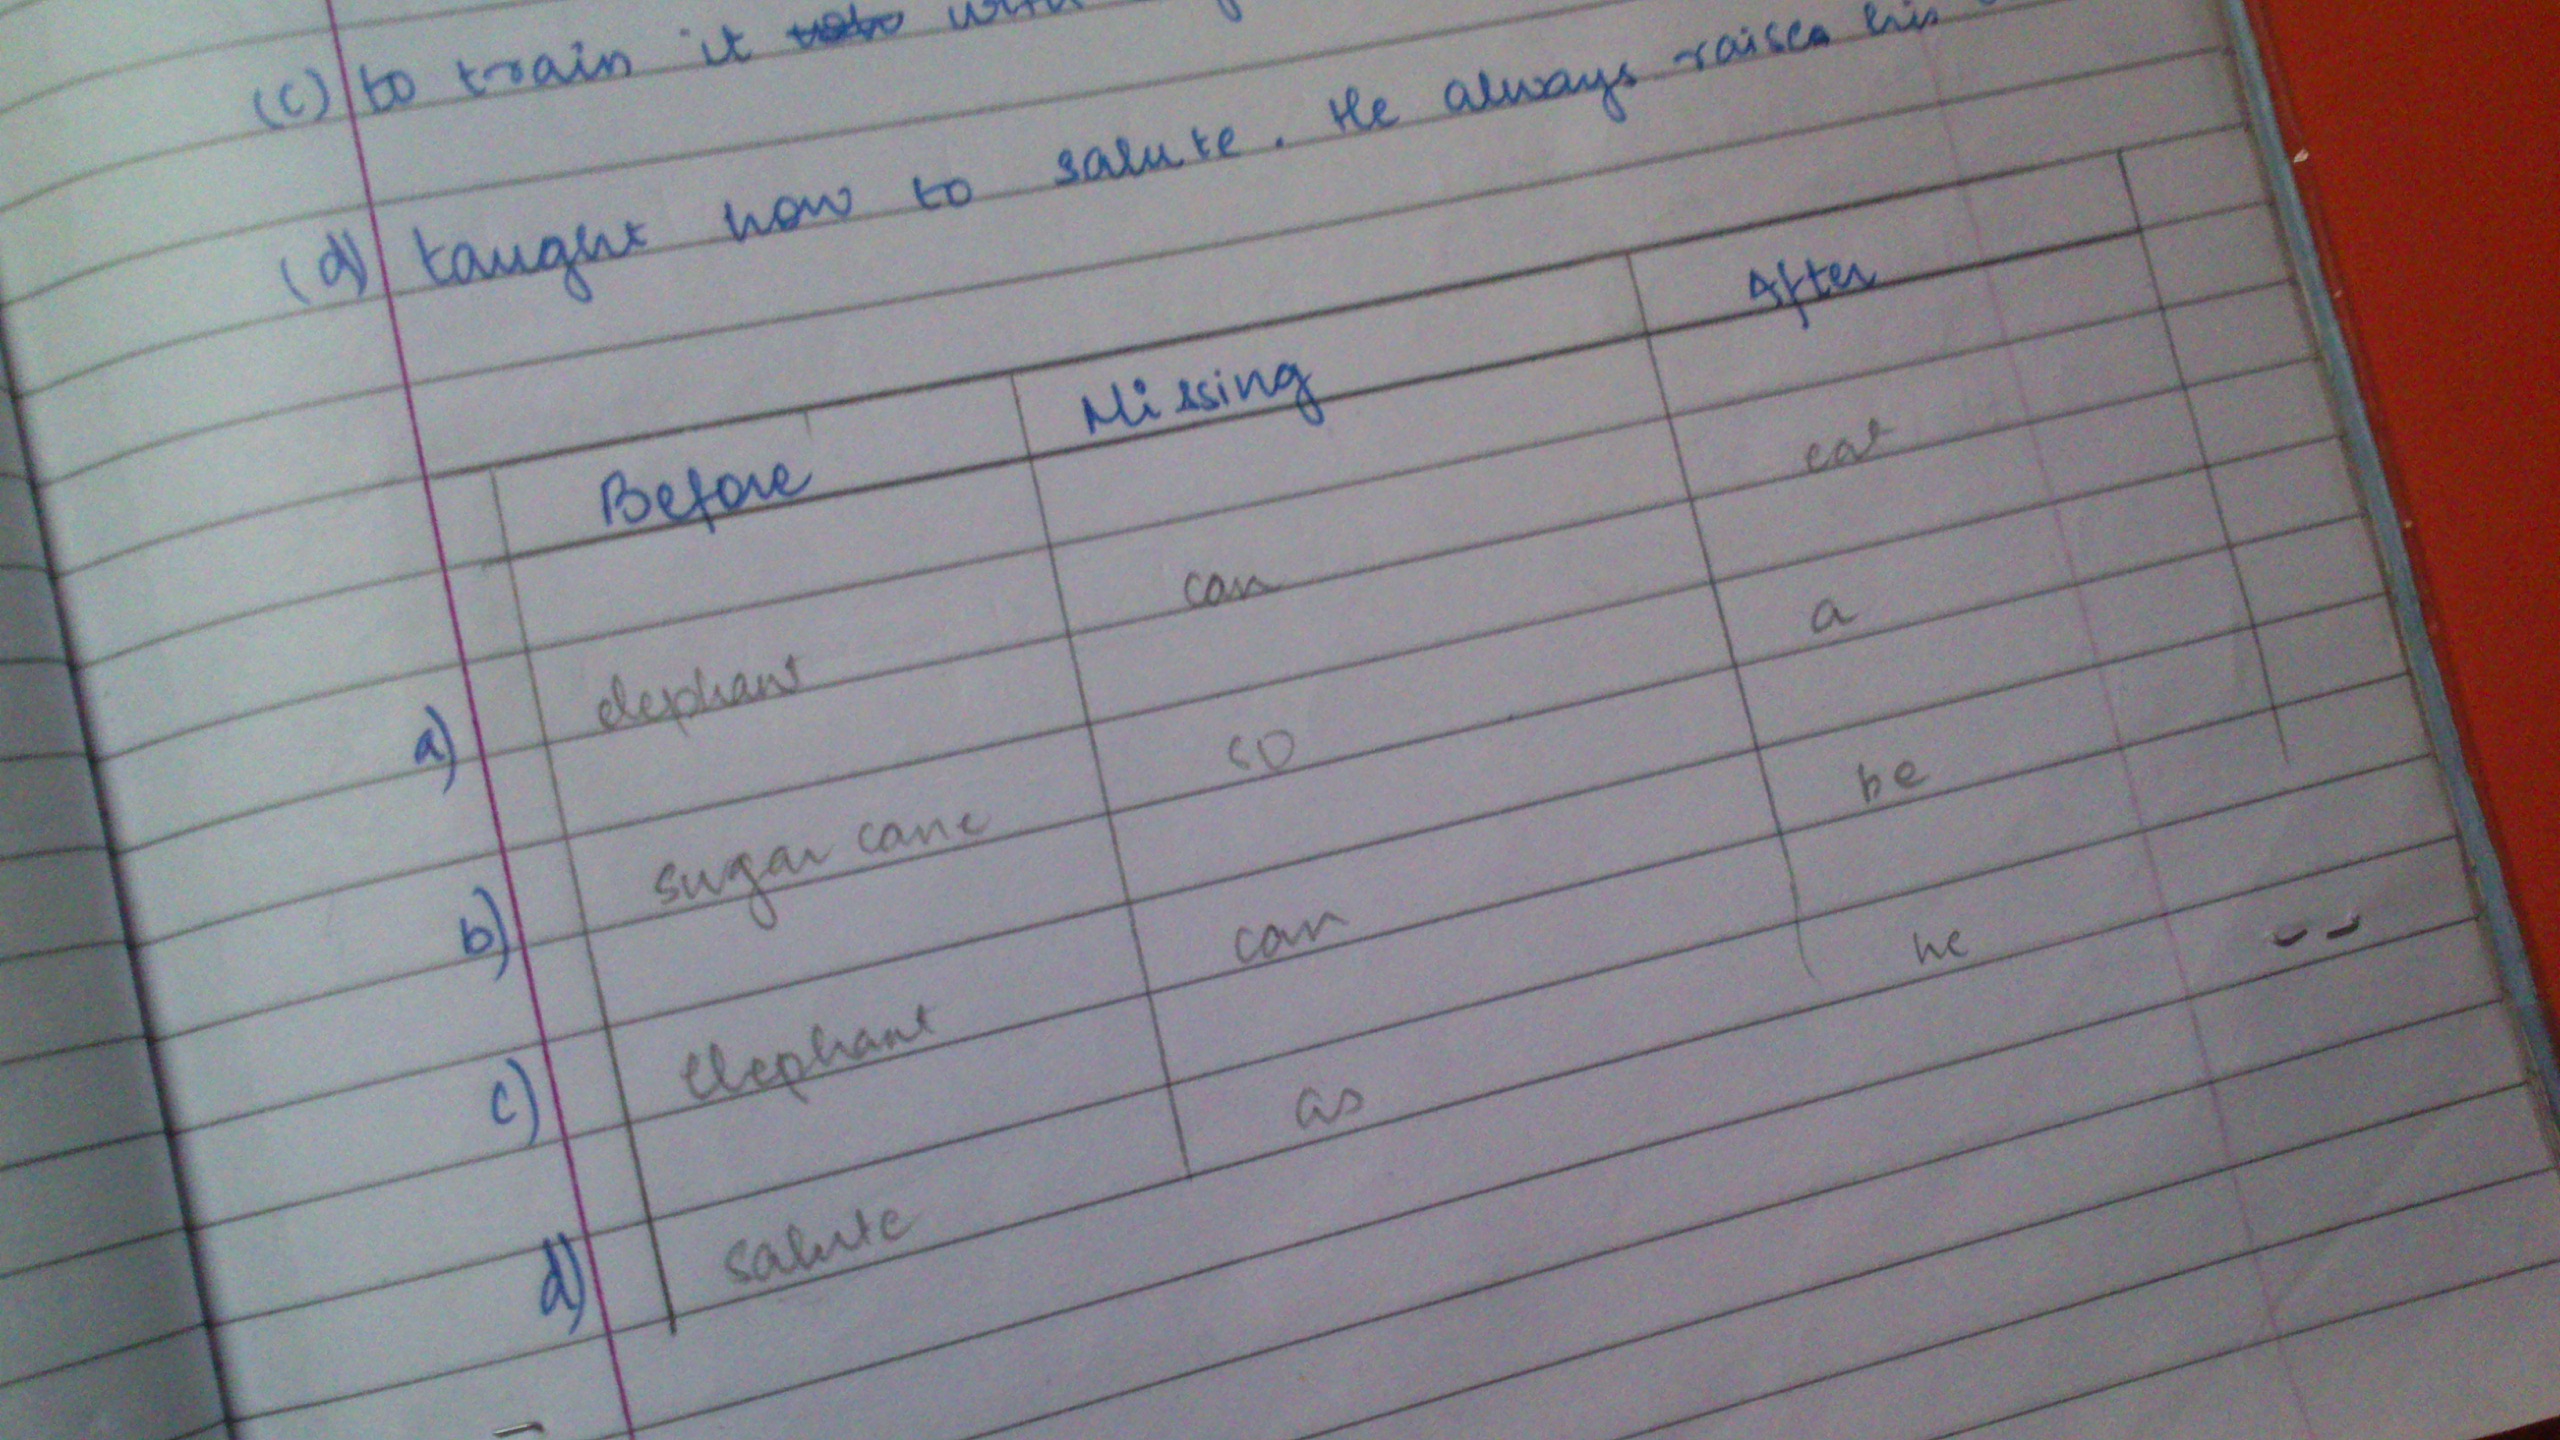 (c) to train it
(d) taught how to salute. He always raises his
Before Missing After
a) elephant can eat
b) sugar cane so a
c) Elephant can be
d) salute as he